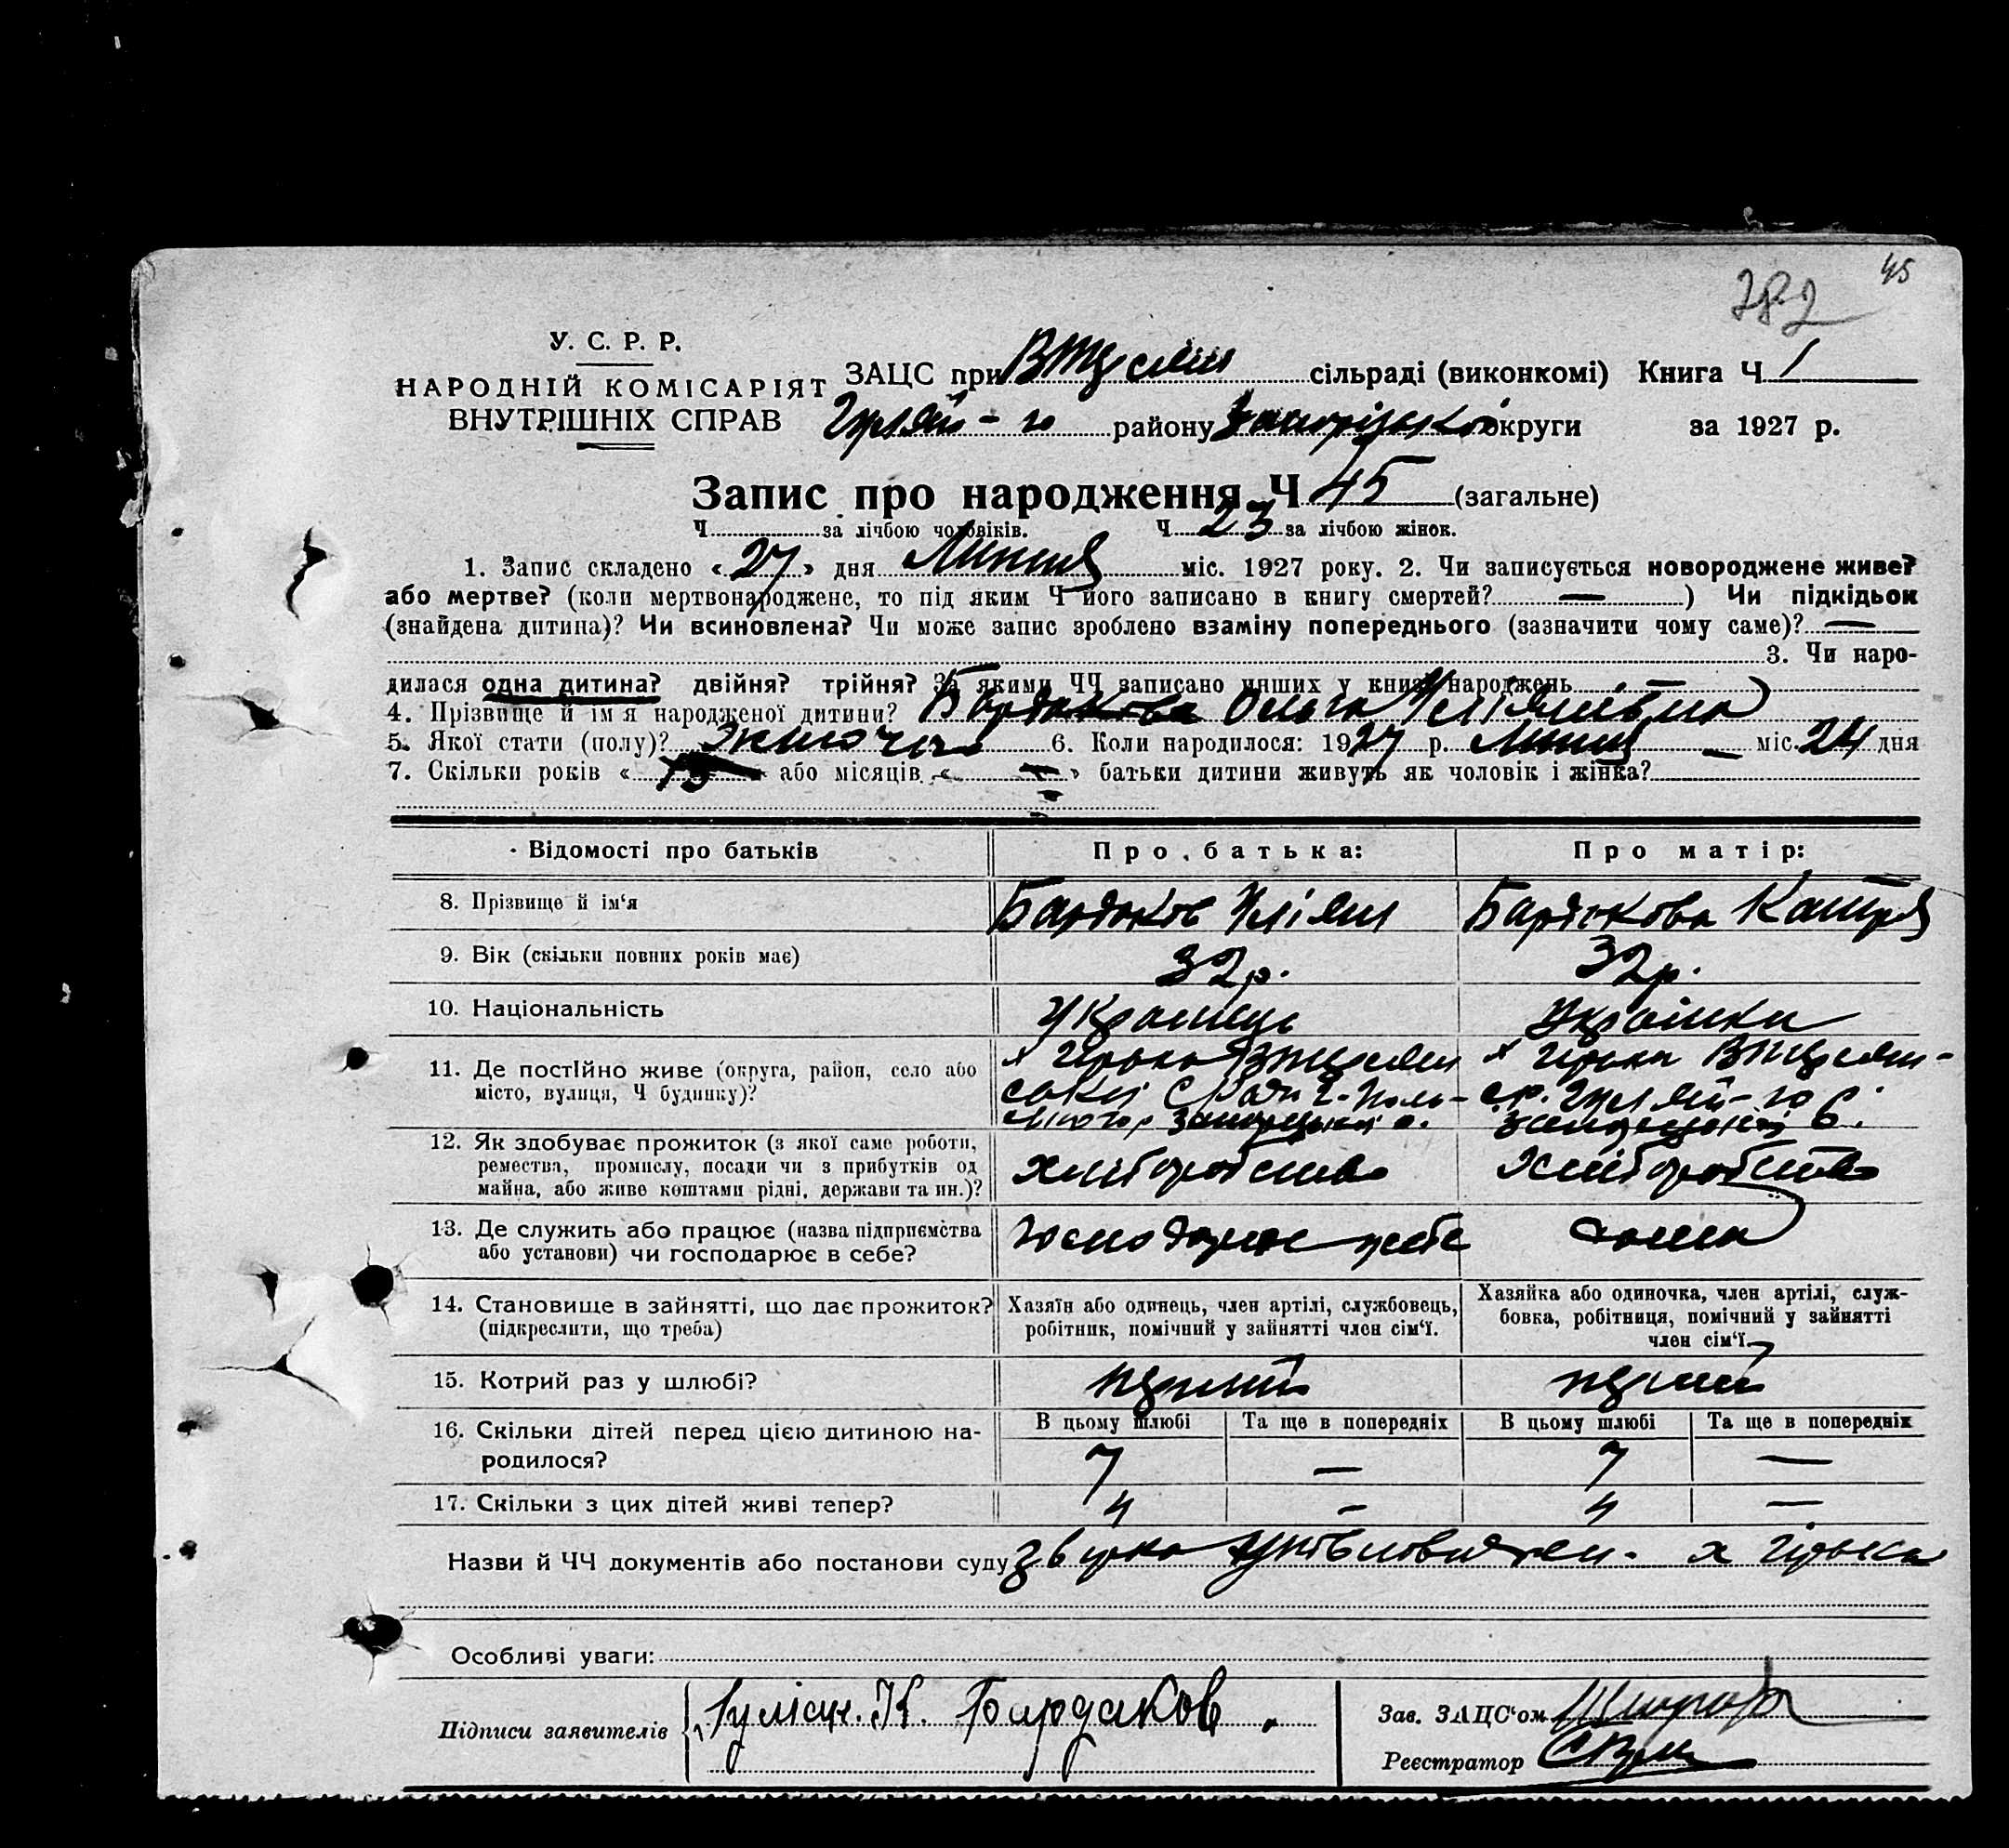 45
282
У. С. Р. Р.
НАРОДНІЙ КОМІСАРІЯТ
ВНУТРІШНІХ СПРАВ
ЗАЦС при сільраді (виконкомі) Книга Ч 1
району Запорізької округи за 1927 р.
Запис про народження Ч 45 (загальне)
Ч за лічбою чоловіків. Ч 23 за лічбою жінок.
1. Запис складено « 27 » дня Липня міс. 1927 року. 2. Чи записується новороджене живе?
або мертве? (коли мертвонароджене, то під яким Ч його записано в книгу смертей? — ) Чи підкідьок
(знайдена дитина)? Чи всиновлена? Чи може запис зроблено взаміну попереднього (зазначити чому саме)? —
3. Чи наро-
дилася одна дитина? двійня? трійня? За якими ЧЧ записано инших у книзі народжень —
4. Прізвище й ім'я народженої дитини? Бардакова Ольга Уліянівна
5. Якої стати (полу)? жиноча 6. Коли народилося: 1927 р. Липня — міс. 24 дня
7. Скільки років « 13 » або місяців « » батьки дитини живуть як чоловік і жінка?
Відомості про батьків Про батька: Про матір:
8. Прізвище й ім'я Бардаков Уліян Бардакова Катря
9. Вік (скільки повних років має) 32 р. 32 р.
10. Національність Украинець Украінка
11. Де постійно живе (округа, район, село або
місто, вулиця, Ч будинку)?
12. Як здобуває прожиток (з якої саме роботи,
ремества, промислу, посади чи з прибутків од
майна, або живе коштами рідні, держави та ин.)? хліборобство хліборобство
13. Де служить або працює (назва підприємства
або установи) чи господарює в себе? господарює у себе
14. Становище в зайнятті, що дає прожиток?
(підкреслити, що треба)
Хазяїн або одинець, член артілі, службовець,
робітник, помічний у зайнятті член сім'ї.
Хазяйка або одиночка, член артілі, служ-
бовка, робітниця, помічний у зайнятті
член сім'ї.
15. Котрий раз у шлюбі? перший перший
16. Скільки дітей перед цією дитиною на-
родилося?
В цьому шлюбі Та ще в попередніх В цьому шлюбі Та ще в попередніх
7 — 7 —
17. Скільки з цих дітей живі тепер? 4 — 4 —
Назви й ЧЧ документів або постанови суду
Особливі уваги:
Підписи заявителів Гуліян. К. Бардаков.
Зав. ЗАЦС'ом
Реєстратор